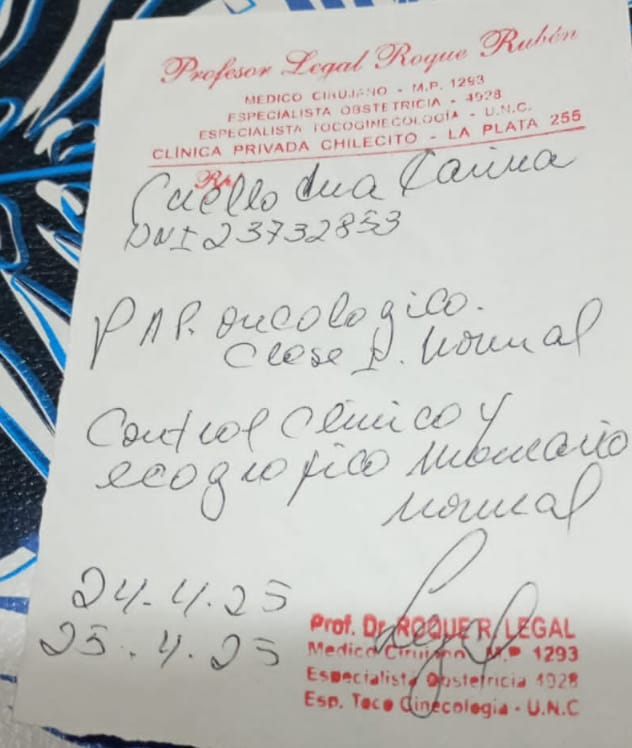 Profesor Legal Roque Rubén
MEDICO CIRUJANO - M.P. 1293
ESPECIALISTA OBSTETRICIA - 4928
ESPECIALISTA TOCOGINECOLOGÍA - U.N.C.
CLÍNICA PRIVADA CHILECITO - LA PLATA 255
Rp.
Cuello Ana Karina
DNI 23732853
PAP. oncologico.
Clase I. Normal
Control Clinico y
ecografico mamario
normal
24-4.25
25.4.25
Prof. Dr. ROQUE R. LEGAL
Medico Cirujano M.P 1293
Especialista Obstetricia 4928
Esp. Toco Ginecologia - U.N.C